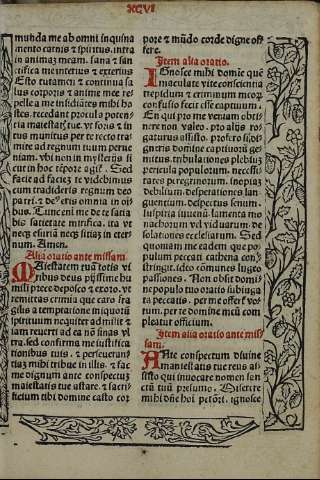 XCVI
munda me ab omni inquina
mento carnis ⁊ spiritus. intra
in animaz meam. sana ⁊ san
ctifica me interius ⁊ exterius
Esto tutamen ⁊ continua sa
lus corporis ⁊ anime mee. re
pelle a me insidiātes mihi ho
stes. recedant procul a poten-
cia maiestaꝭ tue. vt foris ⁊ in
tus munitus per te recto tra
mite ad regnum tuum perue
niam. vbi non in mysterijs si
cut in hoc tēpore agiꞇ̃. Sed
facie ad faciez te videbimus
cum tradideris regnum deo
patri. ⁊ deꝰ eris omnia in oī
bus. Tunc eni me de te satia
bis satietate mirifica. ita vt
neqꝫ esuriā neqꝫ sitiaz in eter
num. Amen.
Alia oratio ante missam.
MAiestatem tuā totis vi
ribus deus pijssime hu
mili prece deposco ⁊ exoro. vt
remittas crimia que caro fra
gilis a temptatione iniquorū
spirituum nequiter admisit ⁊
iam reuerti ad ea nō sinas vl
tra. sed confirma me iustifica
tionibus tuis. ⁊ perseueran
tiaz mihi tribue in illis. ⁊ fac
me dignum ante conspectuz
maiestatis tue astare. ⁊ sacri
ficium tibi domine casto cor
pore ⁊ mūdo corde digne off
ferre.
Item alia oratio.
IGnosce mihi domie quē
maculate vite consciencia
trepidum ⁊ criminum meorꝫ
confusio fecit esse captiuum.
En qui pro me veniam obti
nere non valeo. pro alijs ro-
gaturus assisto. profero si di-
gneris domine captiuorū ge-
mitus. tribulationes plebiuz
pericula populorum. necessi
tates peregrinorum. inopiaz
debilium. desperationes lan-
guentium. defectus senum.
suspiria iuuenū. lamenta mo
nachorum vl viduarum de
solationes ecclesiarum. Sed
quoniam me eadem que po
pulum peccati cathena con-
stringit. idcō cōmunes lugeo
passiones. Non obsit domi
ne populo tuo oratio subiuga
ta peccatis. per me offerꞇ̃ vo-
tum. per te domine meū com
pleatur officium.
Item alia oratio ante mis
sam.
ANte conspectum diuine
maiestatis tue reus as-
sisto qui inuocare nomen san
ctū tuū presumo. Miserere
mihi dn̄e hoī petōri. ignosce